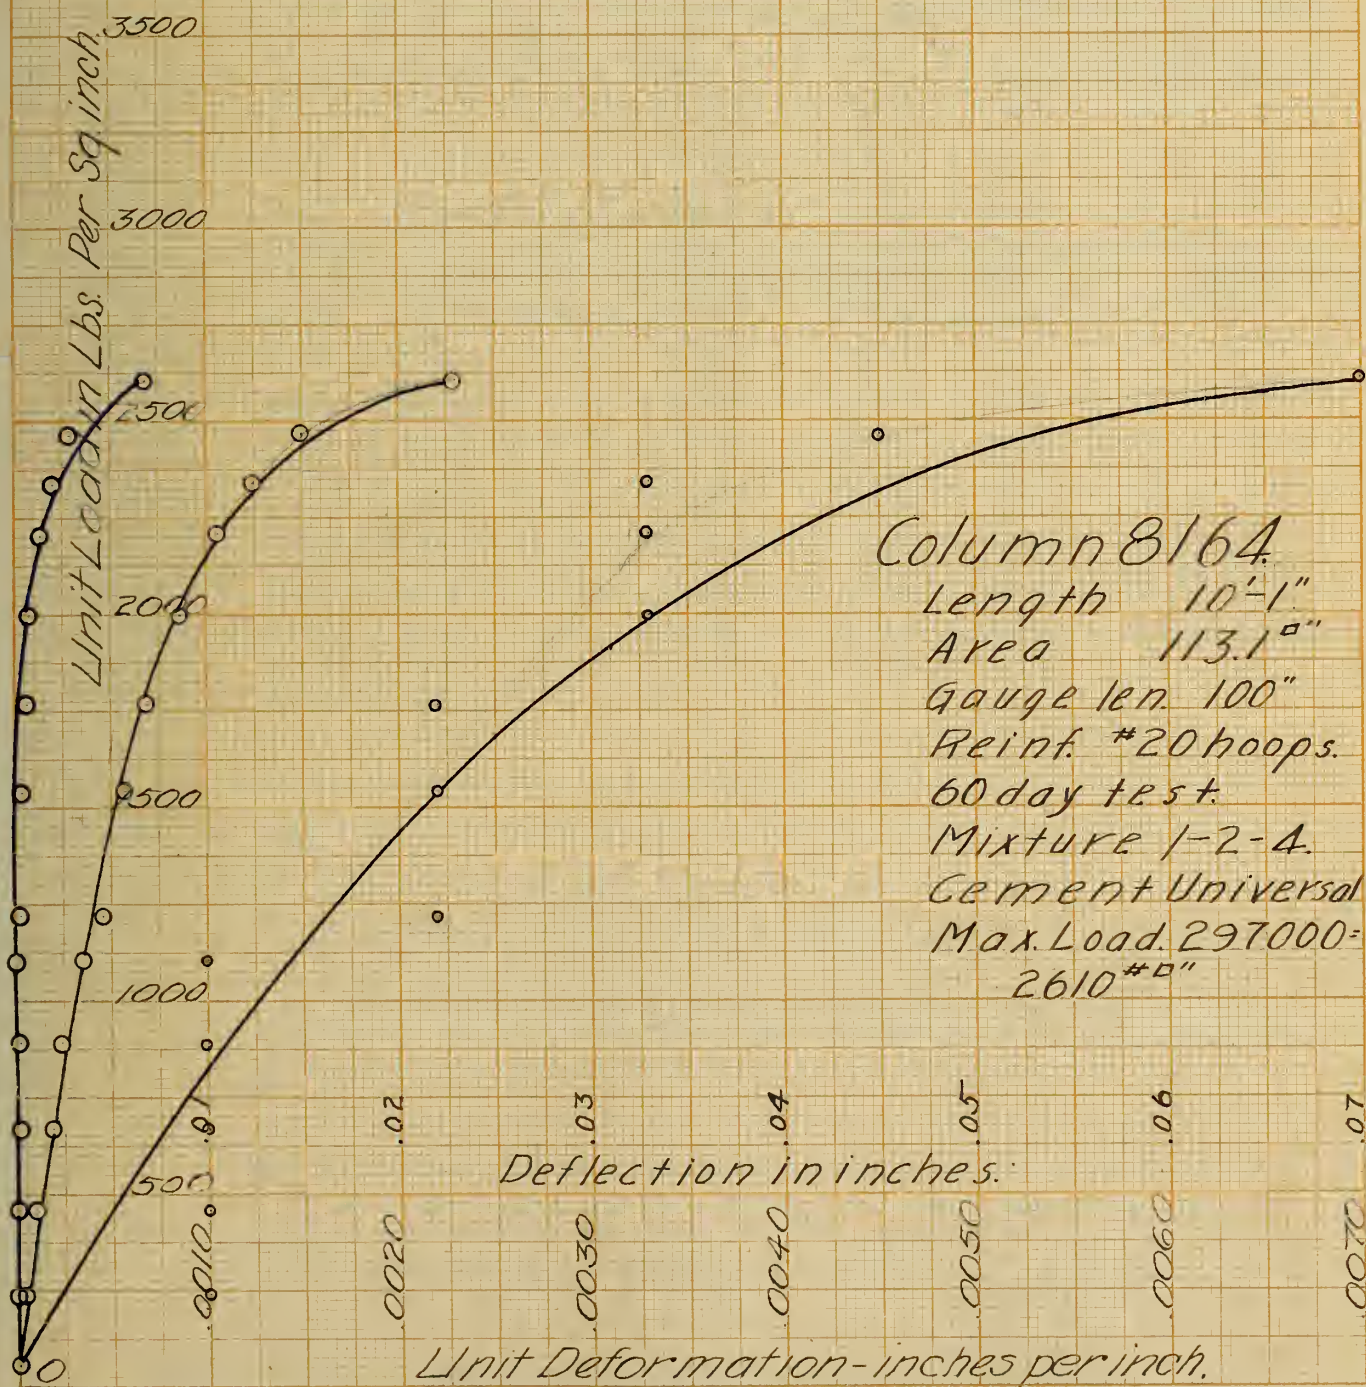 3500
3000
2500
2000
1500
1000
500
0
Unit Load in Lbs. Per Sq. inch.
Column 8164.
Length 10'-1"
Area 113.1□"
Gauge len. 100"
Reinf. #20 hoops.
60 day test.
Mixture 1-2-4.
Cement Universal
Max. Load. 297000=
2610#□"
.01 .02 .03 .04 .05 .06 .07
Deflection in inches.
.0010 .0020 .0030 .0040 .0050 .0060 .0070
Unit Deformation-inches per inch.